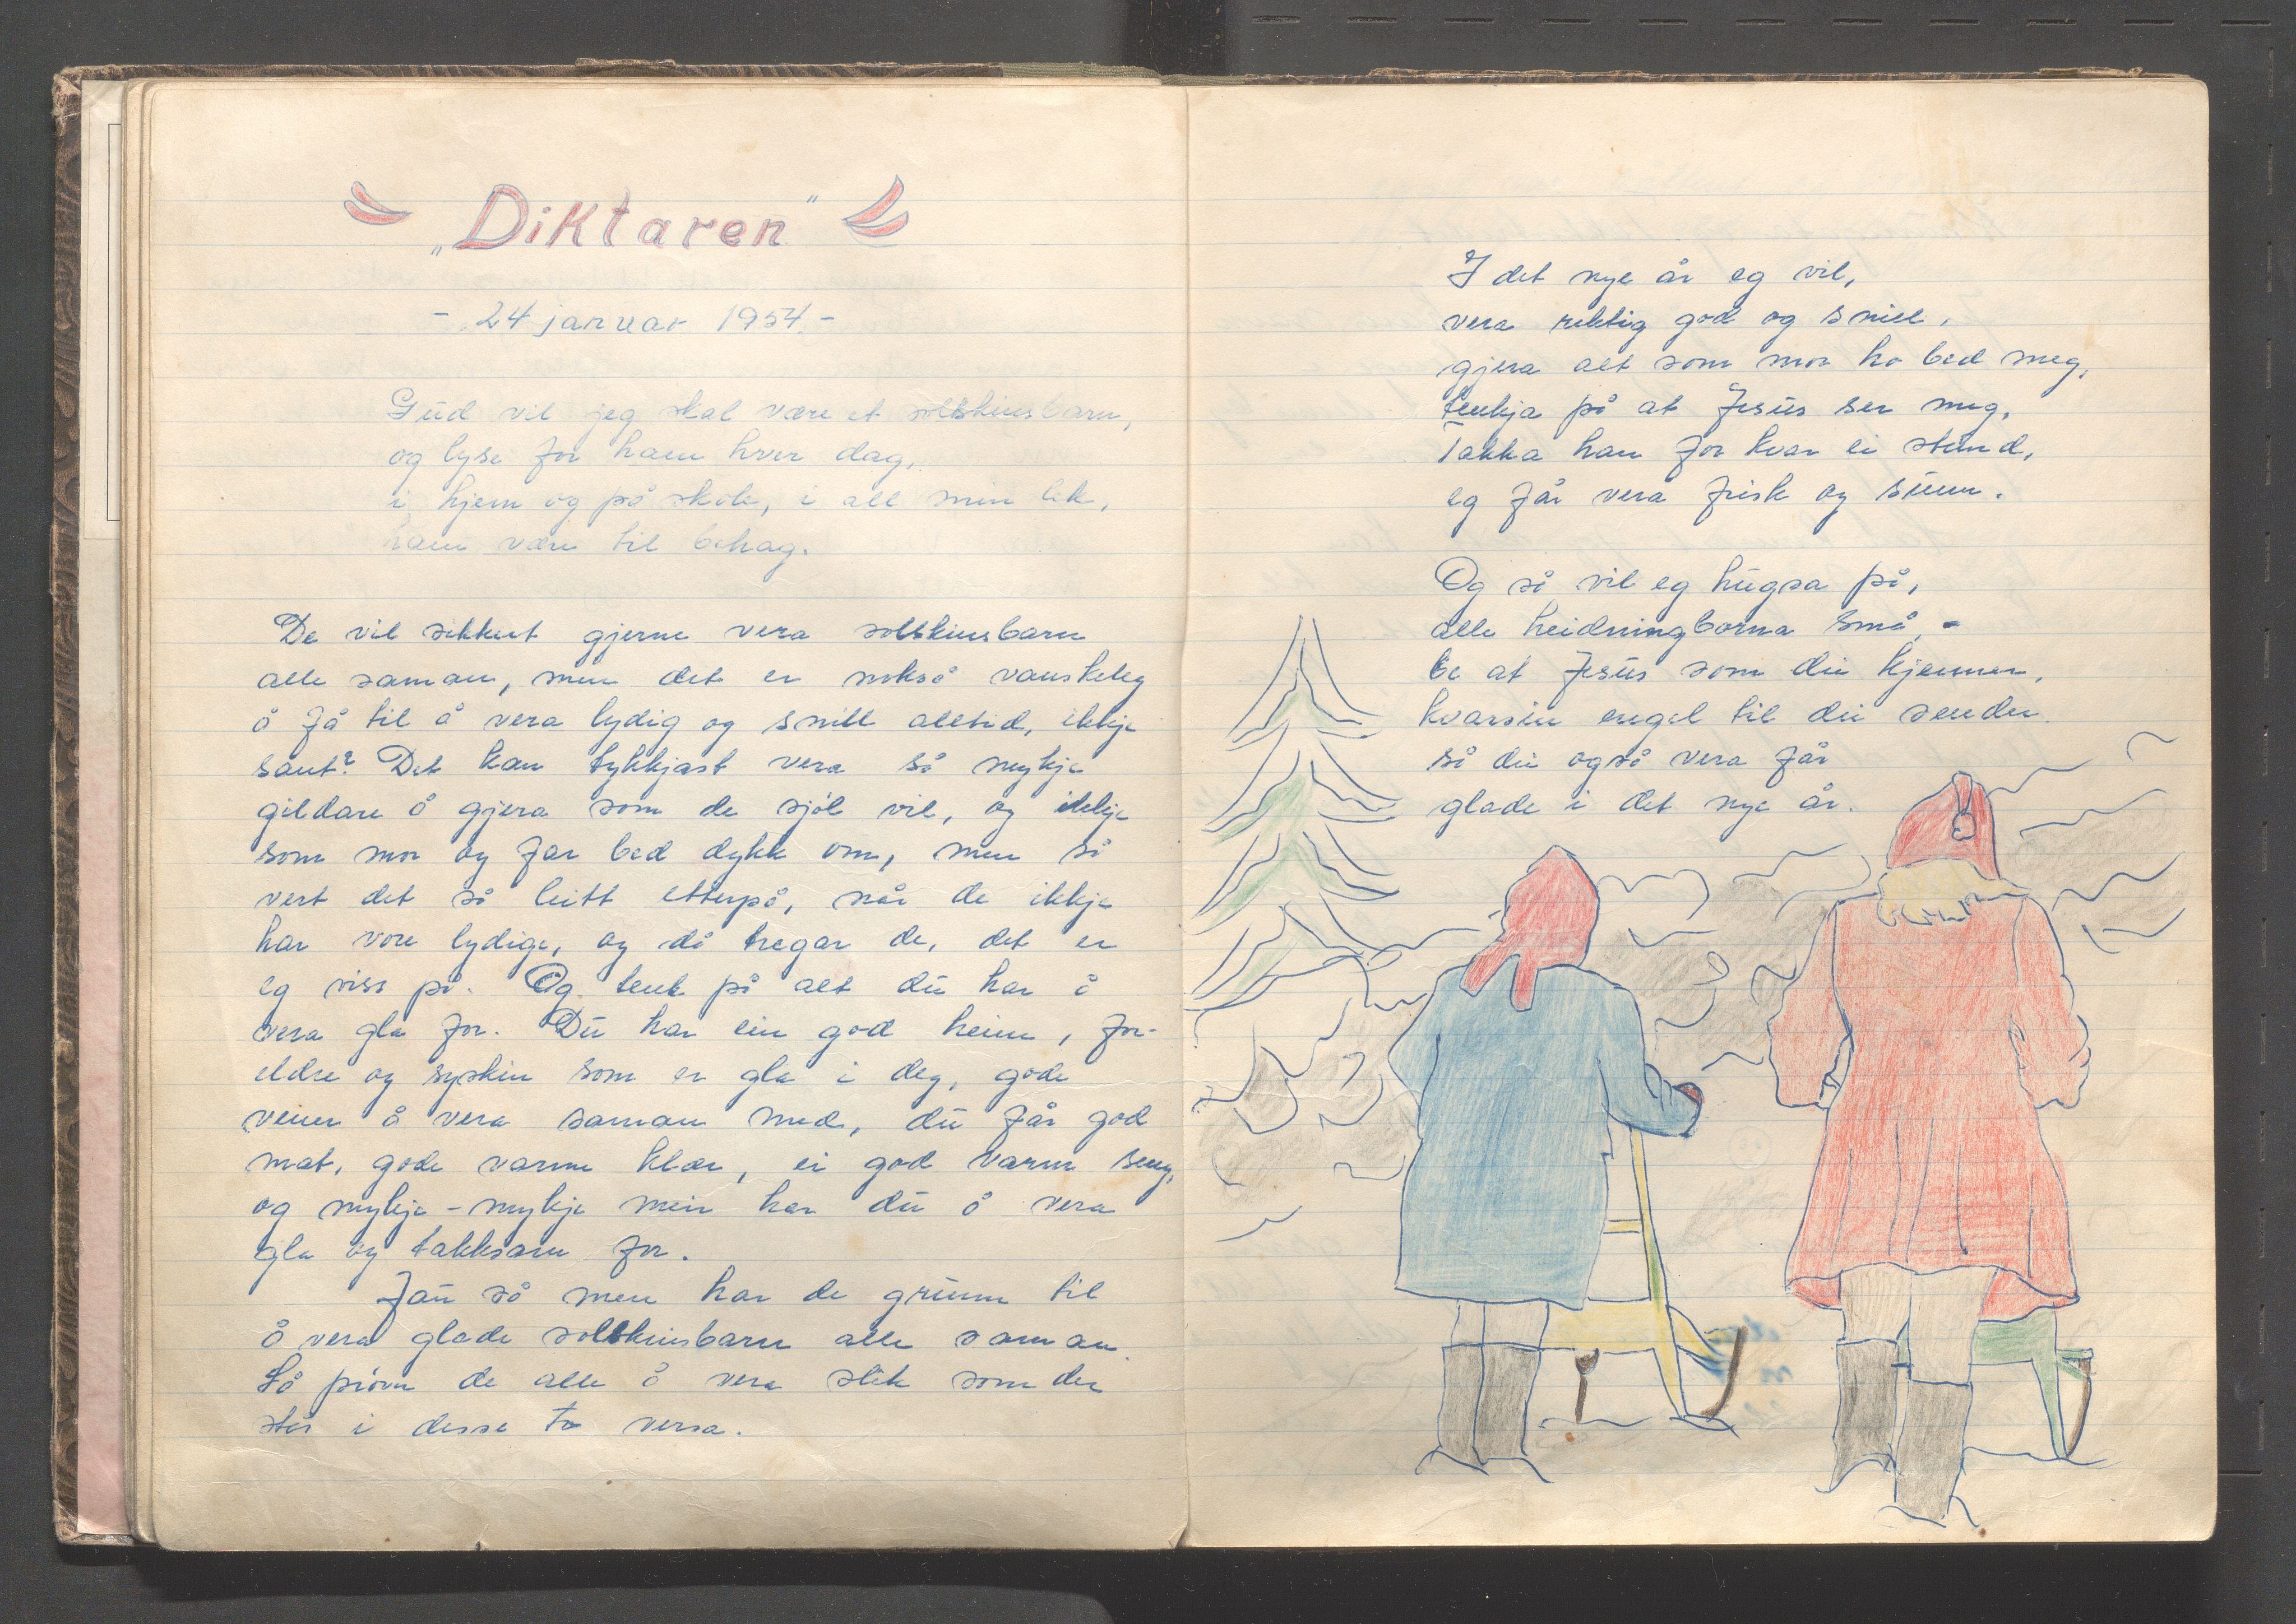 „Diktaren"
- 24 januar 1954. -
Gud vil jeg skal være et solskinsbarn,
og lyse for ham hver dag,
i hjem og på skole, i all min lek,
ham være til behag.
De vil sikkert gjerne vera solskinsbarn
alle saman, men det er nokså vanskeleg
å få til å vera lydig og snill alltid, ikkje
sant? Det kan tykkjast vera så mykje
gildare å gjera som de sjøl vil, og ikkje
som mor og far bed dykk om, men så
vert det så leitt etterpå, når de ikkje
har vore lydige, og då tregar de, det er
eg viss på. Og tenk på alt du har å
vera gla for. Du har ein god heim, for-
eldre og syskin som er gla i deg, gode
vener å vera saman med, du får god
mat, gode varme klær, ei god varm seng,
og mykje - mykje meir har du å vera
gla og takksam for.
Jau så men har de grunn til
å vera glade solskinsbarn alle saman.
Så prøver de alle å vera slik som der
står i desse to versa.
I det nye år eg vil,
vera riktig god og snill,
gjera alt som mor ho bed meg,
tenkja på at Jesus ser meg,
Takka han for kvar ei stund,
eg får vera frisk og sunn.
Og så vil eg hugsa på,
alle heidningborna små, -
be at Jesus som dei kjenner,
kvarsin engel til dei sender
så dei også vera får
glade i det nye år.